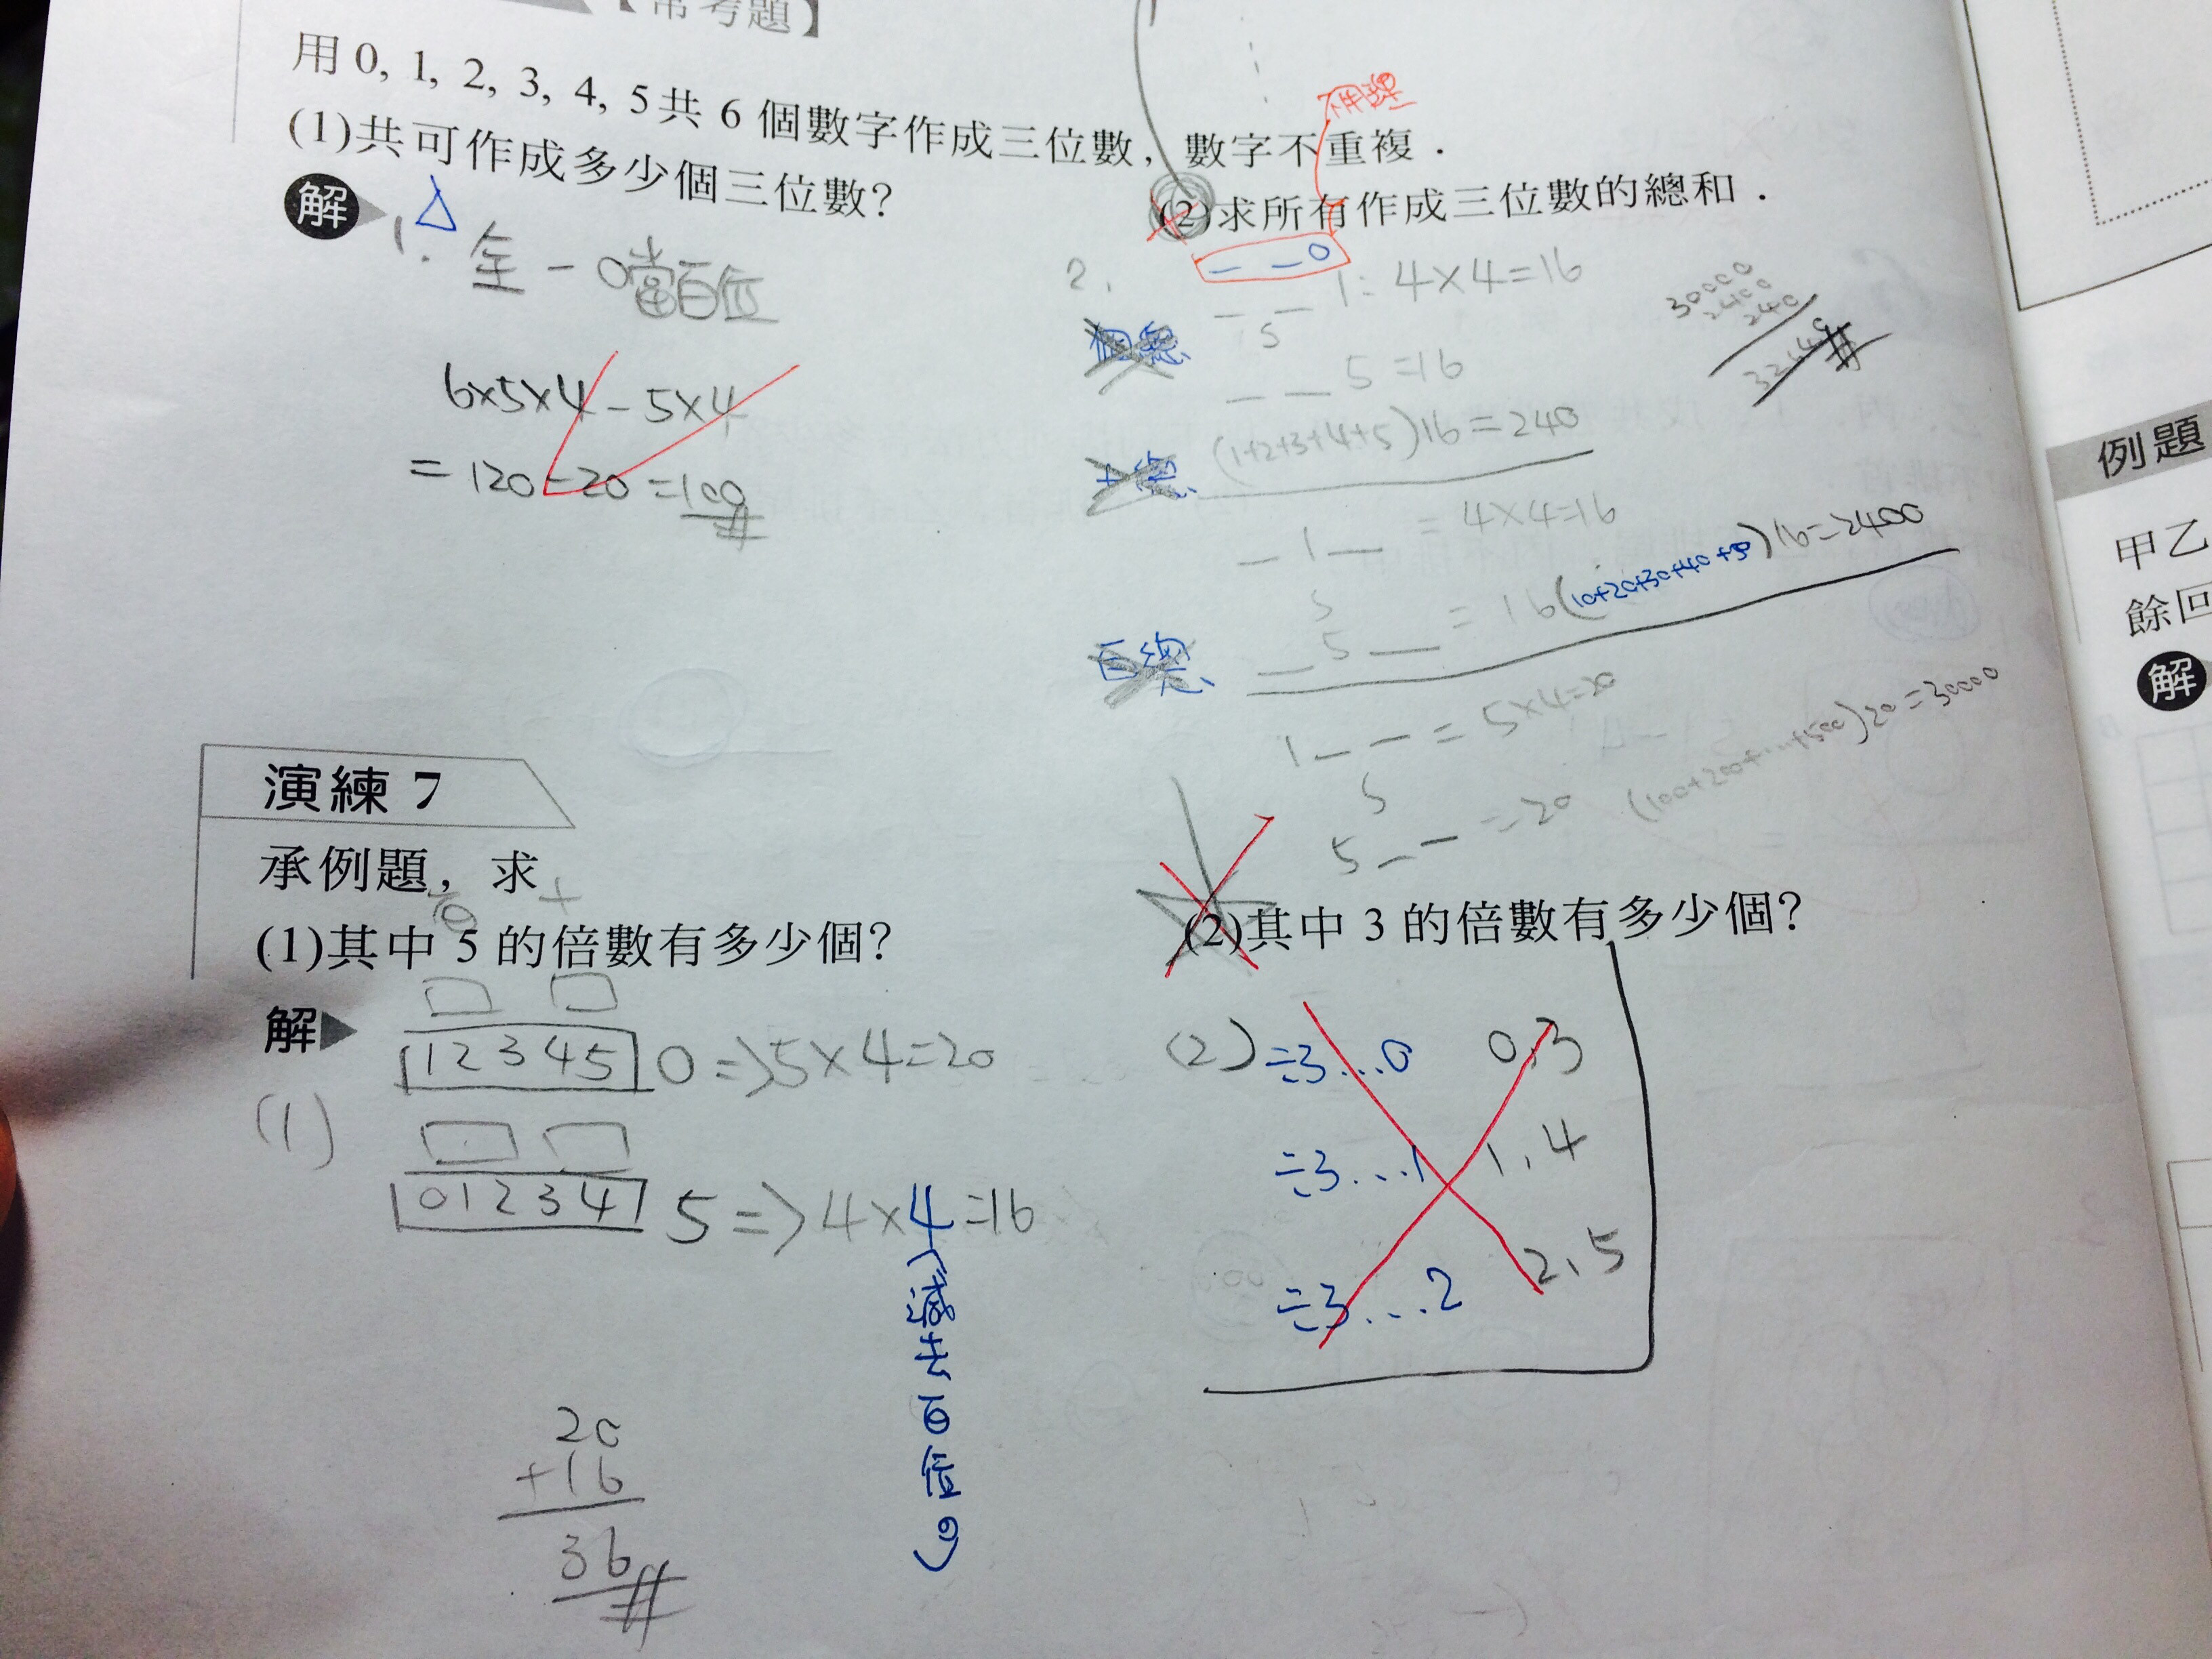 【常考題】
用 0, 1, 2, 3, 4, 5 共 6 個數字作成三位數，數字不重複．
(1)共可作成多少個三位數？
解
1. 全－0當百位
6×5×4－5×4
=120－20=100
不用理
(2)求所有作成三位數的總和．
_ _ 0
2.
_ _ 1: 4×4=16
5
個總
_ _ 5 =16
十總
(1+2+3+4+5)16=240
_ 1 _ =4×4=16
5
_ 5 _ =16(10+20+30+40+50)16=2400
百總
1 _ _ =5×4=20
5
5 _ _ =20 (100+200+...+500)20=30000
30000
2400
240
32640
演練 7
承例題，求
(1)其中 5 的倍數有多少個？
解
(1)
12345 0=>5×4=20
01234 5=>4×4=16
20
+16
36
(2)其中 3 的倍數有多少個？
(2) ÷3...0 0,3
÷3...1 1,4
÷3...2 2,5
例題
甲乙
餘回
解